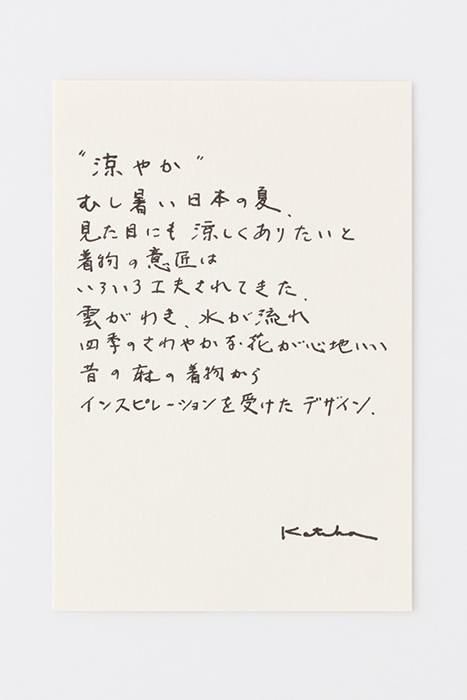 "涼やか"
むし暑い日本の夏、
見た目にも涼しくありたいと
着物の意匠は
いろいろ工夫されてきた。
雲がわき、水が流れ
四季のさわやかな花が心地いい
昔の麻の着物から
インスピレーションを受けたデザイン。